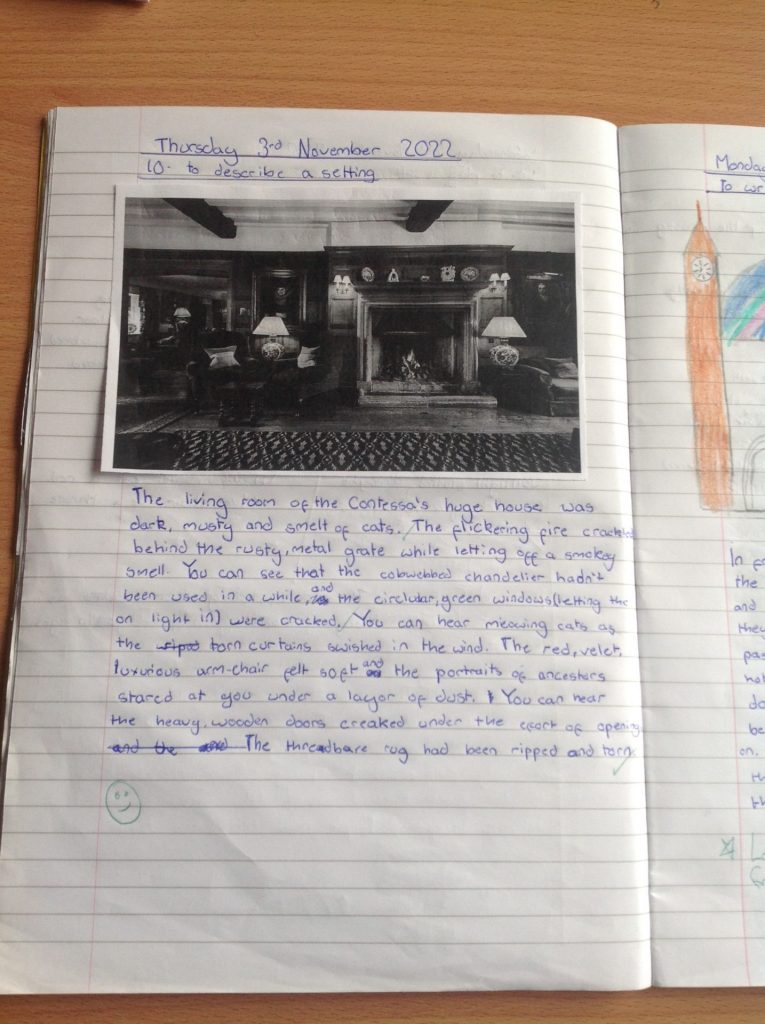 Thursday 3rd November 2022
LO- to describe a setting
The living room of the Contessa's huge house was
dark, musty and smelt of cats. The flickering fire crackled
behind the rusty, metal grate while letting off a smokey
smell. You can see that the cobwebbed chandelier hadn't
been used in a while, and the circlular, green windows (letting the
on light in) were cracked. You can hear meowing cats as
the torn curtains swished in the wind. The red, velet,
luxurious arm-chair felt soft and the portraits of ancestors
stared at you under a layor of dust. You can hear
the heavy, wooden doors creaked under the effort of opening
and the and The threadbare rug had been ripped and torn
Monday
To wr
In
the
and
they
pas
not
do
be
on.
th
th